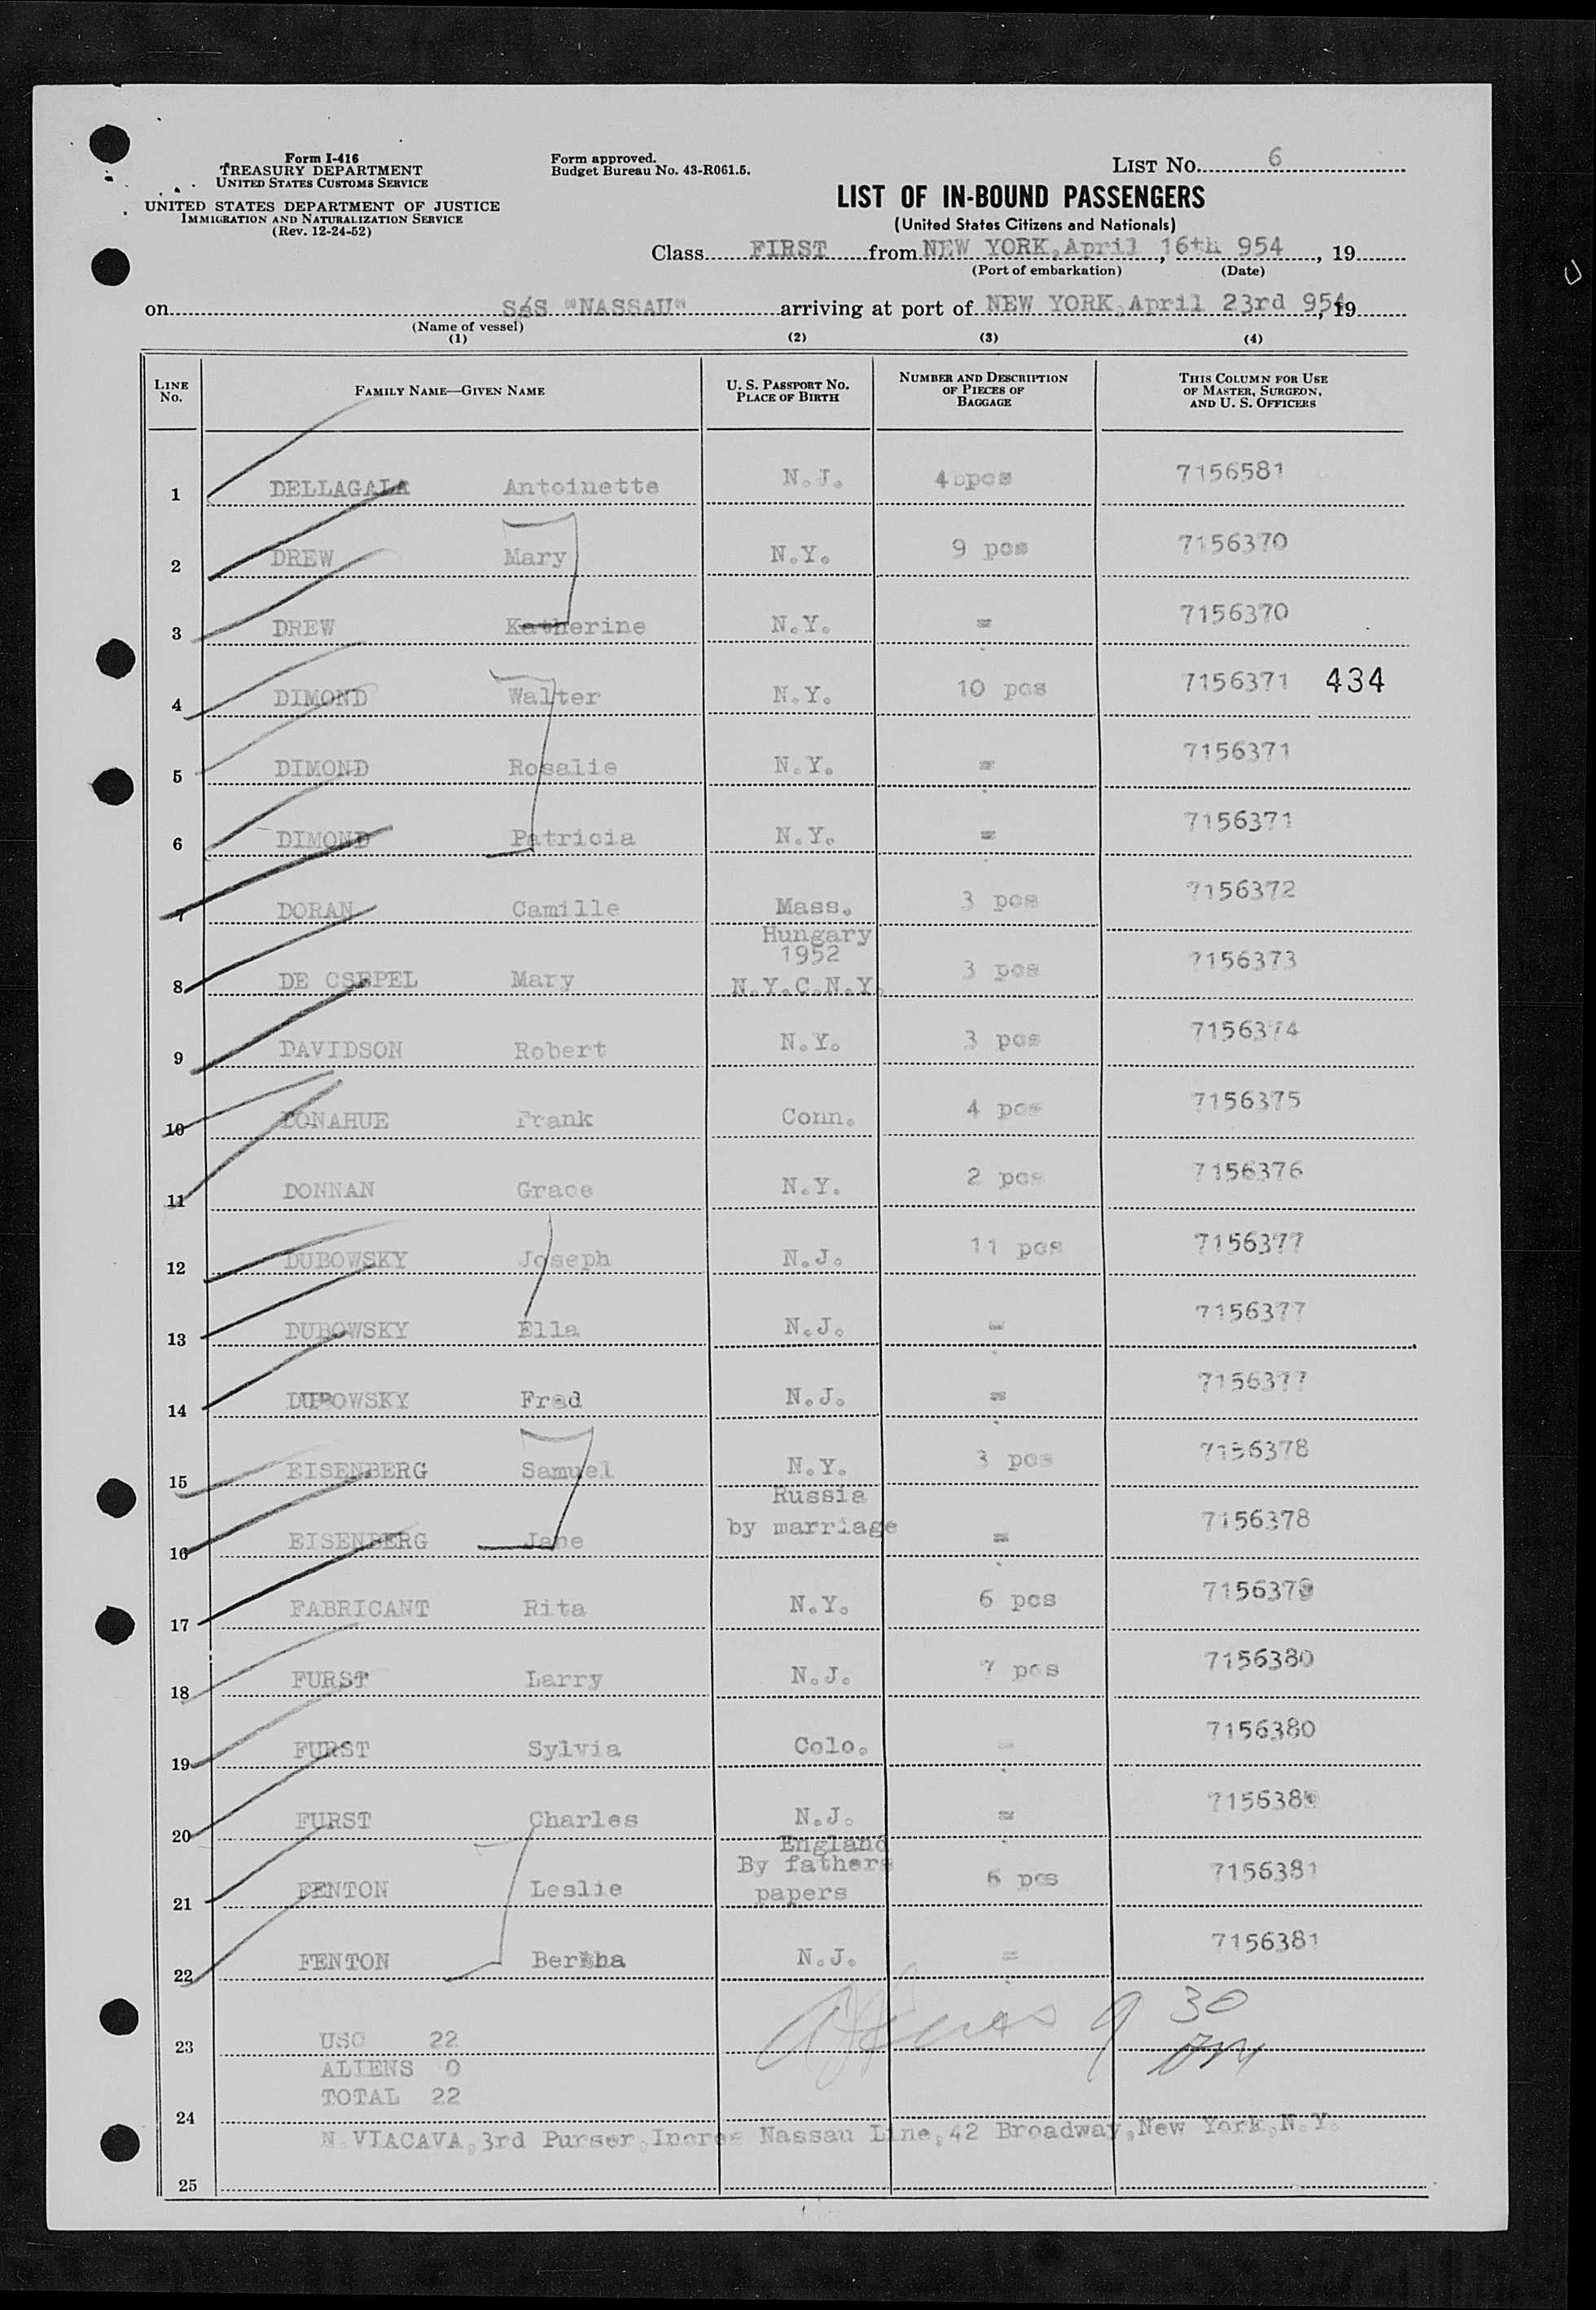 Form I-416
TREASURY DEPARTMENT
UNITED STATES CUSTOMS SERVICE
UNITED STATES DEPARTMENT OF JUSTICE
IMMIGRATION AND NATURALIZATION SERVICE
(Rev. 12-24-52)
Form approved.
Budget Bureau No. 43-R061.5.
LIST No. 6
LIST OF IN-BOUND PASSENGERS
(United States Citizens and Nationals)
Class FIRST from NEW YORK, April 16th 954, 19
(Port of embarkation) (Date)
on S/S "NASSAU" arriving at port of NEW YORK, April 23rd 954, 19
(Name of vessel)
(1) (2) (3) (4)
LINE No. FAMILY NAME—GIVEN NAME U. S. PASSPORT No. PLACE OF BIRTH NUMBER AND DESCRIPTION OF PIECES OF BAGGAGE THIS COLUMN FOR USE OF MASTER, SURGEON, AND U. S. OFFICERS
1 DELLAGALA Antoinette N.J. 4 pcs 7156581
2 DREW Mary N.Y. 9 pcs 7156370
3 DREW Katherine N.Y. = 7156370
4 DIMOND Walter N.Y. 10 pcs 7156371 434
5 DIMOND Rosalie N.Y. = 7156371
6 DIMOND Patricia N.Y. = 7156371
7 DORAN Camille Mass. 3 pcs 7156372
Hungary
1952
8 DE CSEPEL Mary N.Y.C.N.Y. 3 pcs 7156373
9 DAVIDSON Robert N.Y. 3 pcs 7156374
10 DONAHUE Frank Conn. 4 pcs 7156375
11 DONNAN Grace N.Y. 2 pcs 7156376
12 DUBOWSKY Joseph N.J. 11 pcs 7156377
13 DUBOWSKY Ella N.J. = 7156377
14 DUBOWSKY Fred N.J. = 7156377
15 EISENBERG Samuel N.Y. 3 pcs 7156378
Russia
16 EISENBERG Jane by marriage = 7156378
17 FABRICANT Rita N.Y. 6 pcs 7156379
18 FURST Larry N.J. 7 pcs 7156380
19 FURST Sylvia Colo. = 7156380
20 FURST Charles N.J. = 7156380
England
By fathers
21 FENTON Leslie papers 6 pcs 7156381
22 FENTON Bertha N.J. = 7156381
9 30
23 USC 22
ALIENS 0
TOTAL 22
24
N. VIACAVA, 3rd Purser, Incres Nassau Line, 42 Broadway, New York, N.Y.
25